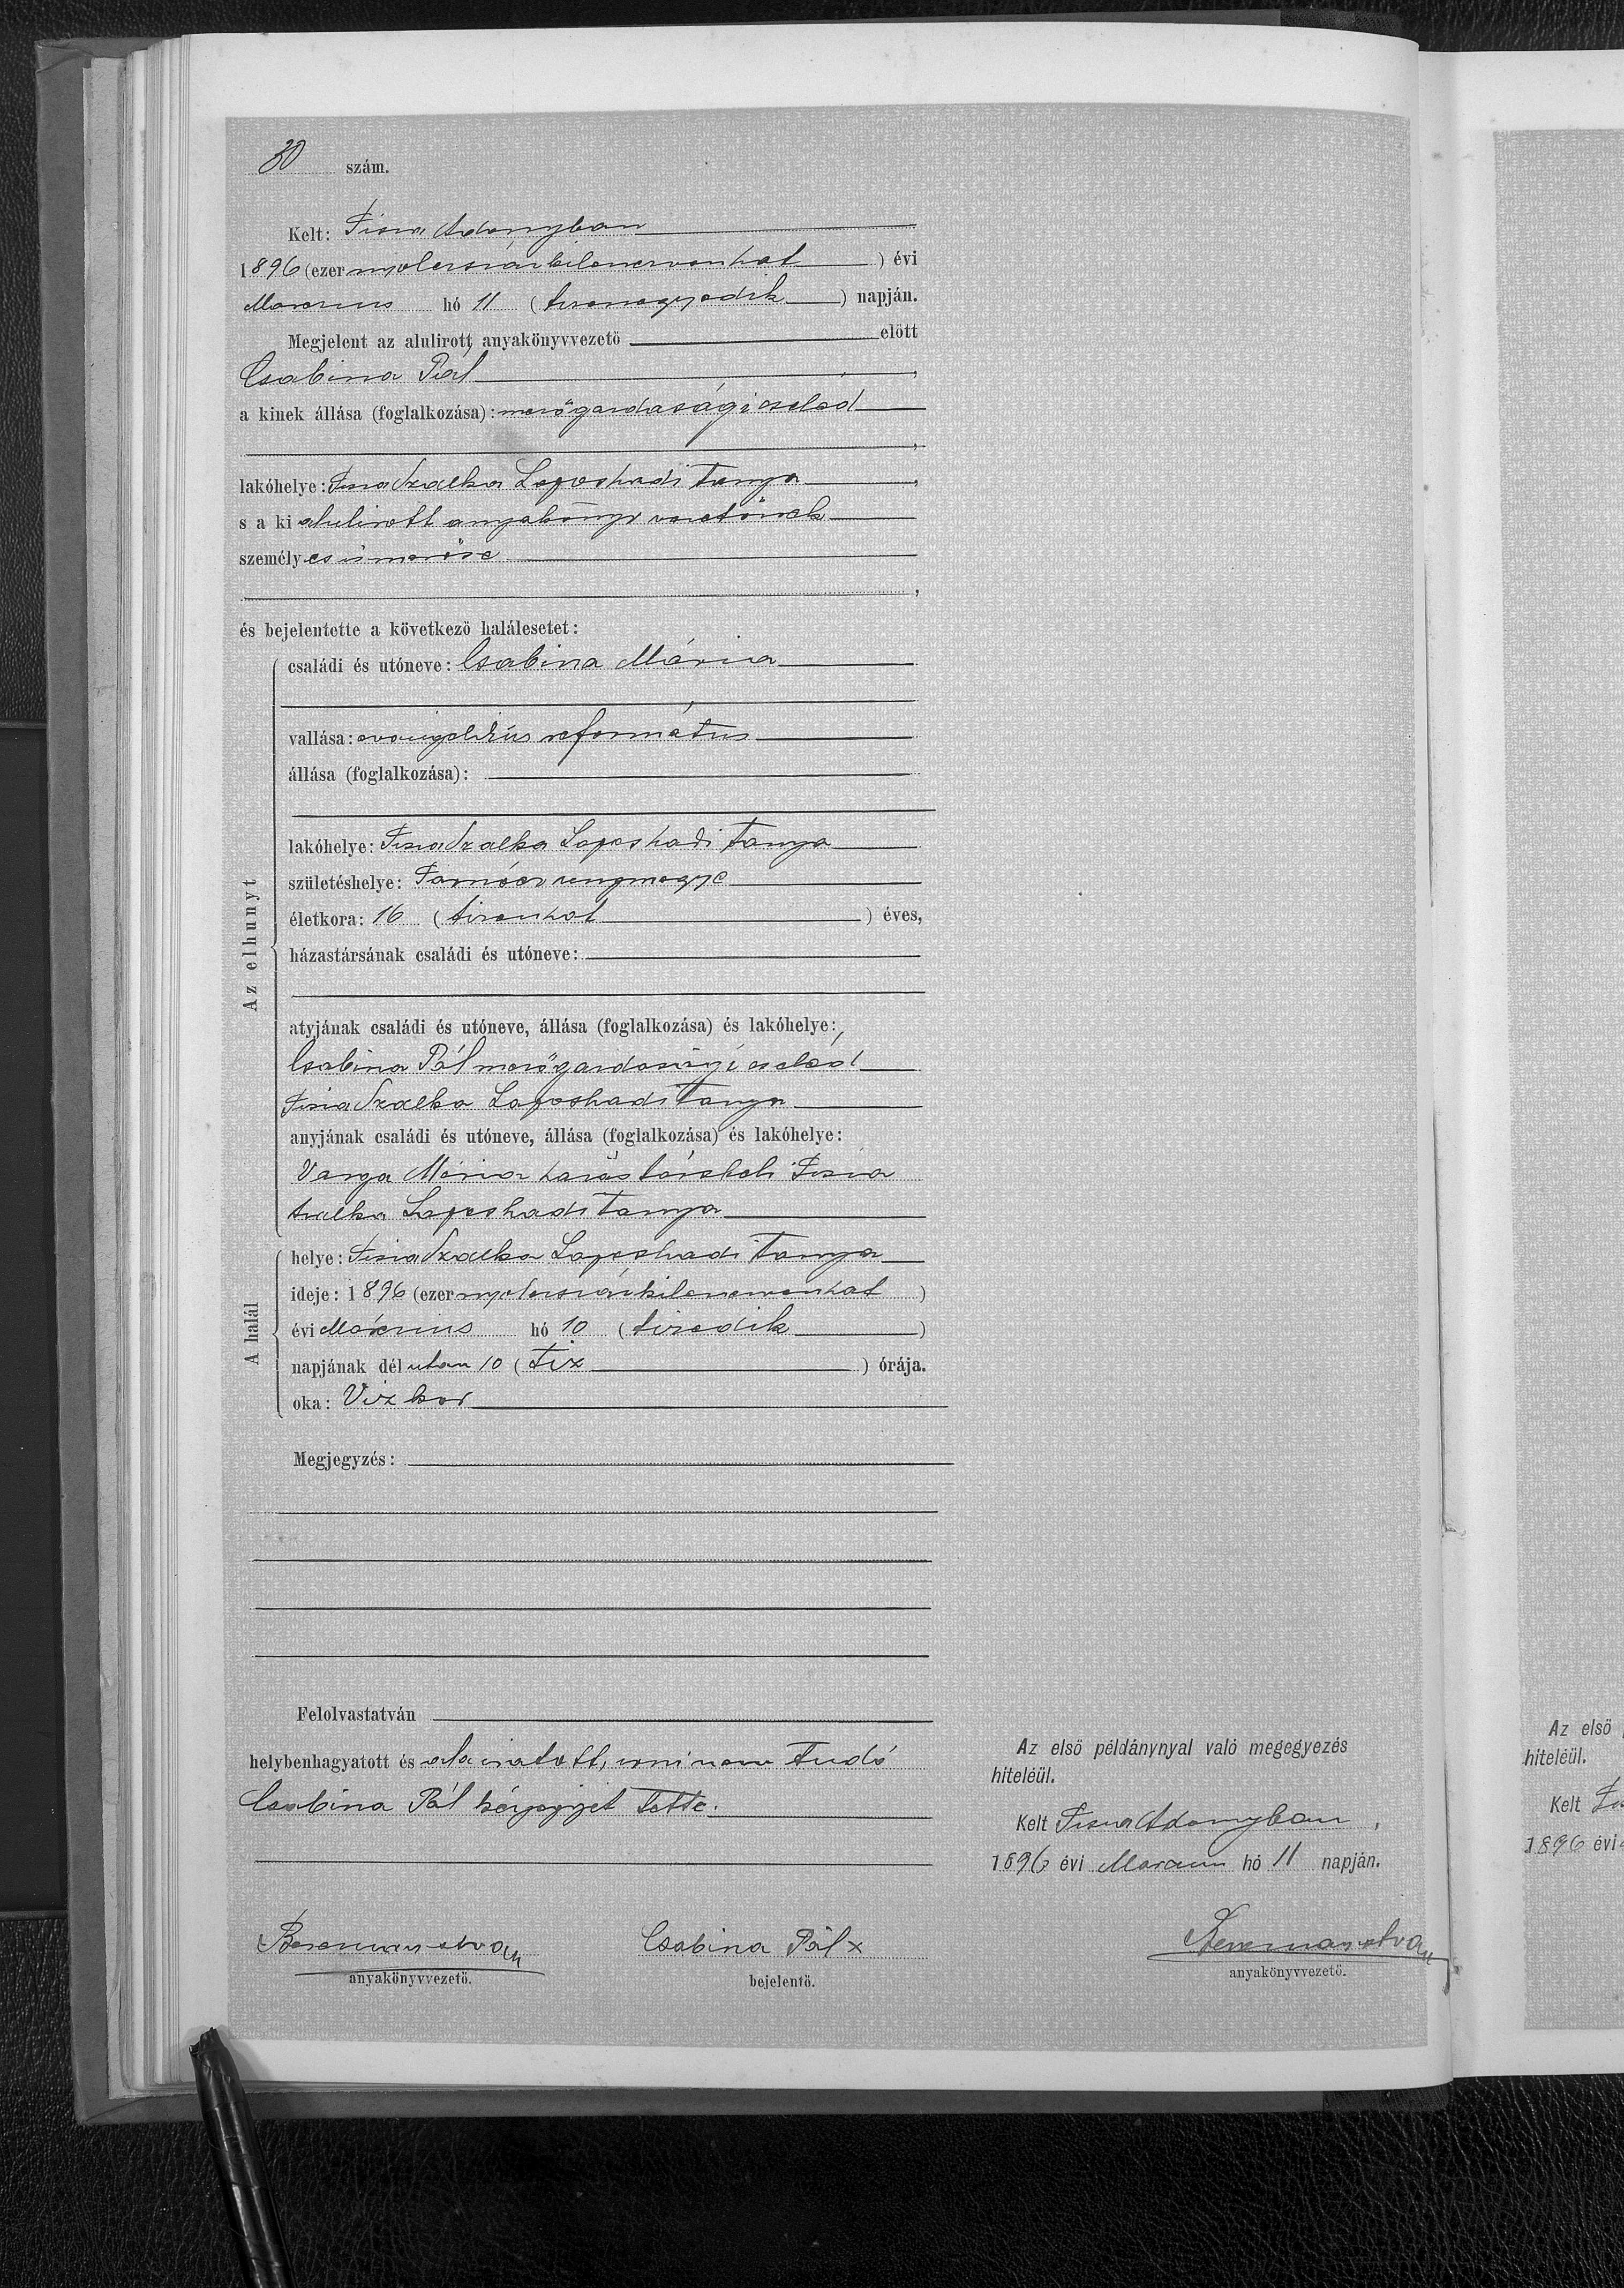 30 szám.
Kelt: Tisza Adonyban
1896 (ezernyolcszázkilencvenhat) évi
Marczius hó 11 (tizenegyedik) napján.
Megjelent az alulirott anyakönyvvezető előtt
Csabina Pál,
a kinek állása (foglalkozása): mezőgazdasági cseléd
,
lakóhelye: Tisza Szalka Laposhadi tanya,
s a ki alulirott anyakönyv vezetőnek
személyes ismerőse
,
és bejelentette a következő halálesetet:
Az elhunyt
családi és utóneve: Csabina Mária
vallása: evangelikus református
állása (foglalkozása):
lakóhelye: Tisza Szalka Laposhadi tanya
születéshelye: Tarnócz ungmegye
életkora: 16 (tizenhat) éves,
házastársának családi és utóneve:
atyjának családi és utóneve, állása (foglalkozása) és lakóhelye:
Csabina Pál mezőgazdasági cseléd
Tisza Szalka Laposhadi tanya
anyjának családi és utóneve, állása (foglalkozása) és lakóhelye:
Varga Mária házastársbeli Tisza
szalka Laposhadi tanya
A halál
helye: Tisza Szalka Laposhadi tanya
ideje: 1896 (ezernyolcszázkilencvenhat)
évi Márczius hó 10 (tizedik)
napjának dél utan 10 (tiz) órája.
oka: Viz kor
Megjegyzés:
Felolvastatván
helybenhagyatott és aláiratott, irni nem tudó
Csabina Pál kézjegyét tette.
anyakönyvvezető.
Csabina Pál x
bejelentő.
Az első példánynyal való megegyezés
hiteléül.
Kelt Tisza Adonyban,
1896 évi Marczius hó 11 napján.
anyakönyvvezető.
Az első
hiteléül.
Kelt
1896 évi